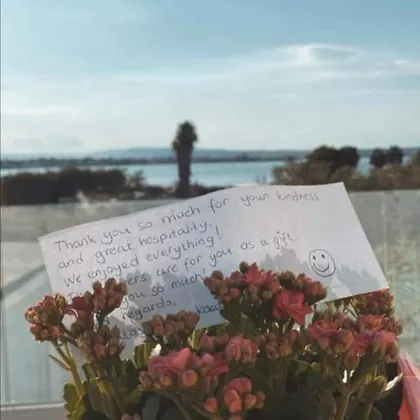 Thank you so much for your kindness
and great hospitality.
We enjoyed everything!
are for you as a gift.
you so much!